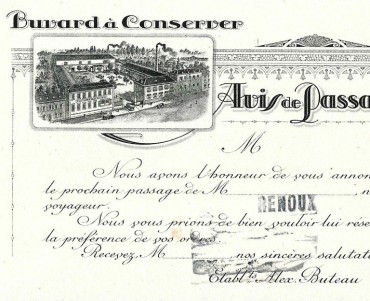 Buvard à Conserver
Avis de Passa
M
Nous avons l'honneur de vous annon
le prochain passage de M
voyageur.
RENOUX
Nous vous prions de bien vouloir lui rése
la préférence de vos ordres.
Recevez, M nos sincères salutat
Etablts Alex. Buteau